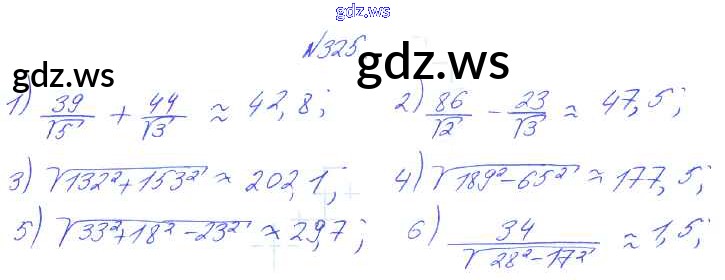 gdz.ws
№325
gdz.ws gdz.ws
1) 39/√5 + 44/√3 ≈ 42,8; 2) 86/√2 - 23/√3 ≈ 47,5;
3) √132²+153² ≈ 202,1; 4) √189²-65² ≈ 177,5;
5) √33²+18²-23² ≈ 29,7; 6) 34/√28²-17² ≈ 1,5;